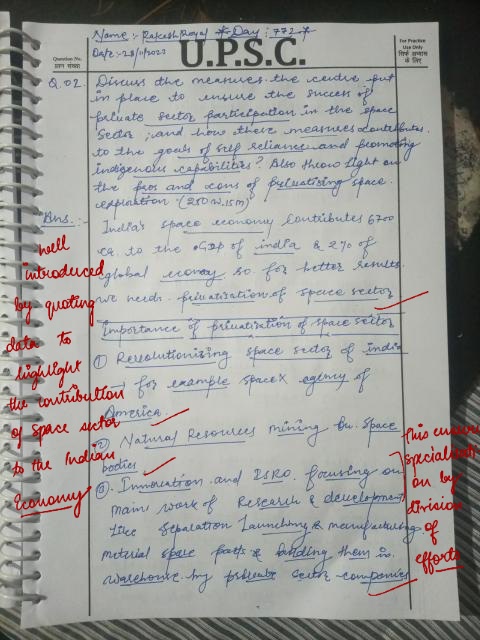 Name :- Rakesh Royal * Day : 772 *
Date :- 28/11/2023
U.P.S.C.
Question No.
प्रश्न संख्या
For Practice
Use Only
सिर्फ अभ्यास
के लिए
Q.02. Discuss the measures the centre put
in place to ensure the success of
private sector participation in the space
sector ; and how these measures contributes
to the goals of self reliance and promoting
indigenous capabilities? Also throw light on
the pros and cons of privatising space
exploration (250 W, 15m)
Ans. :- India's space economy contributes 6700
to the GDP of india & 2% of
global economy so for better results
we needs privatisation of space sector
Importance of privatisation of space sector
① Revolutionising space sector of india
for example spaceX agency of
America
② Natural Resources mining on space
bodies
③ Innovation and ISRO focusing on
main work of Research & development
like separation launching & manufacturing
material space parts & building them in
warehouse by private sector companies
well
introduced
by quoting
data to
highlight
the contribution
of space sector
to the Indian
Economy
This ensures
specialisati
on by
division
of
efforts